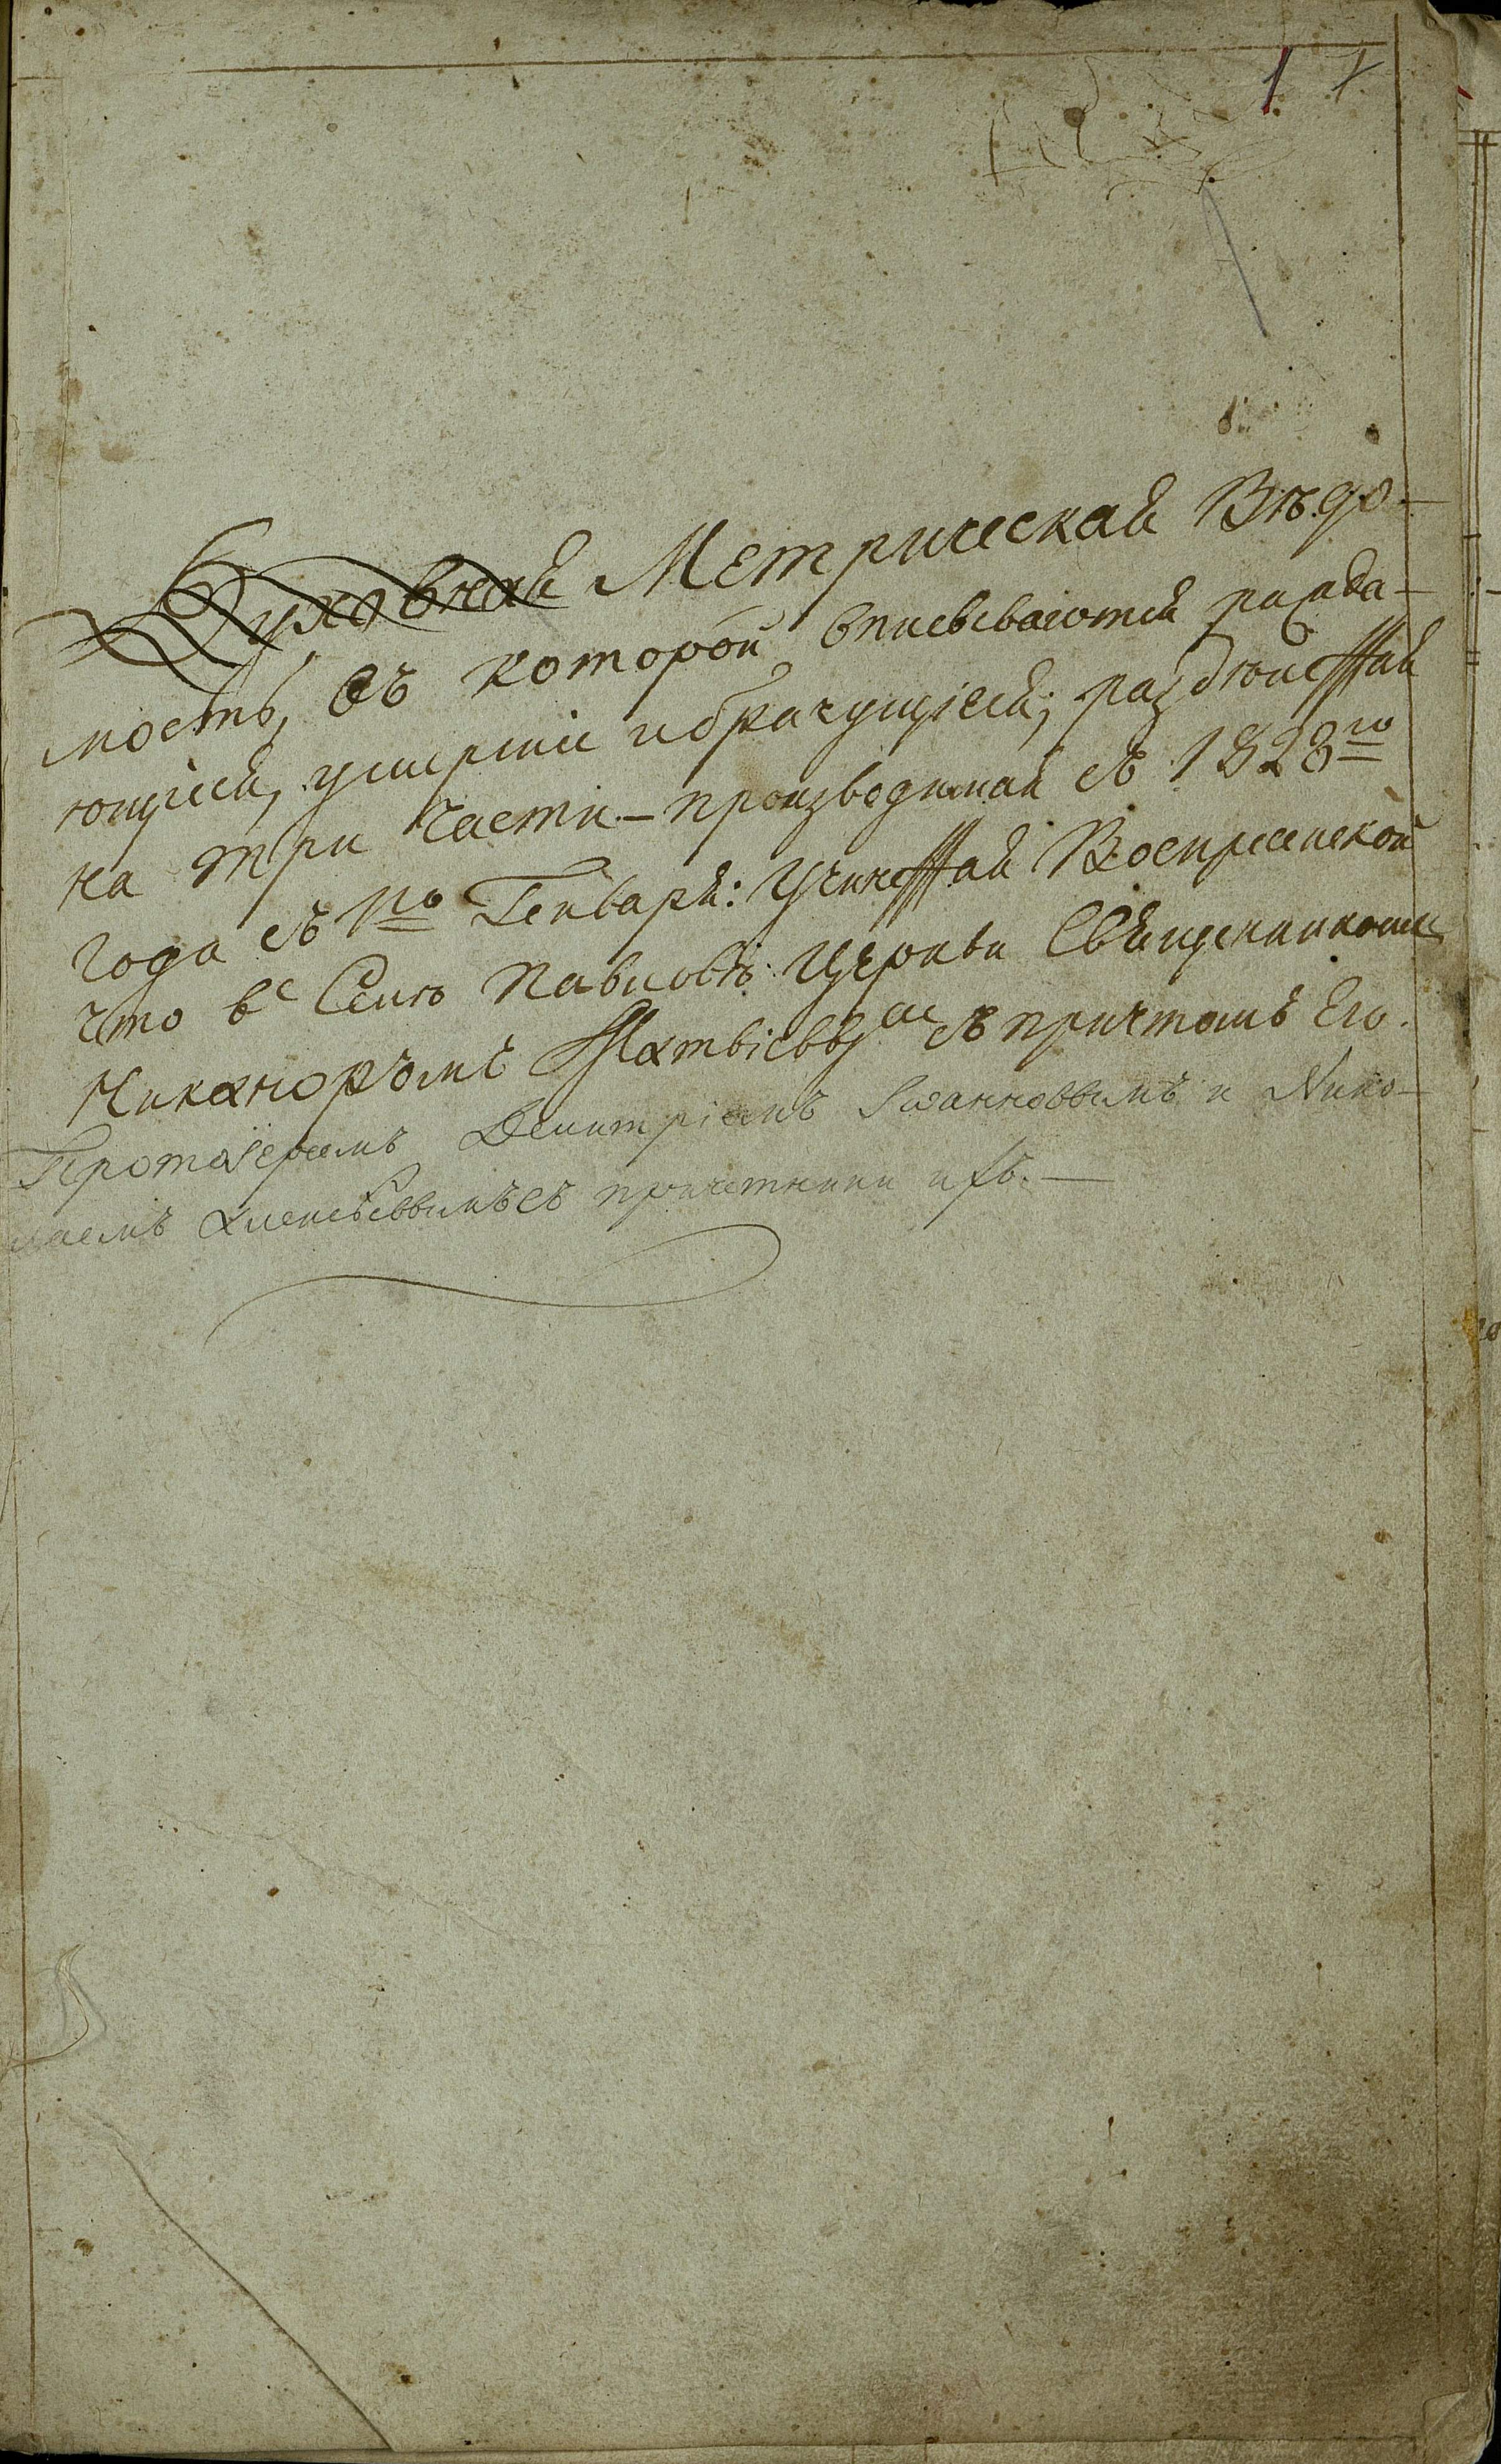 1 1
Духовная Метрическая Вѣдо-
мость, въ которой вписываются ражда-
ющіеся, умершіе и брачущіеся; раздѣленная
на три части – производимая съ 1828го
года съ 1го Генваря: Учиненная Воскресенской
что в Селѣ Павловѣ Церкви Священникомъ
Никаноромъ Матвіевымъ съ причтомъ Его.
Протоіереемъ Димитріемъ Іоанновымъ и Нико-
лаемъ Алексѣевымъ съ причетники ихъ.